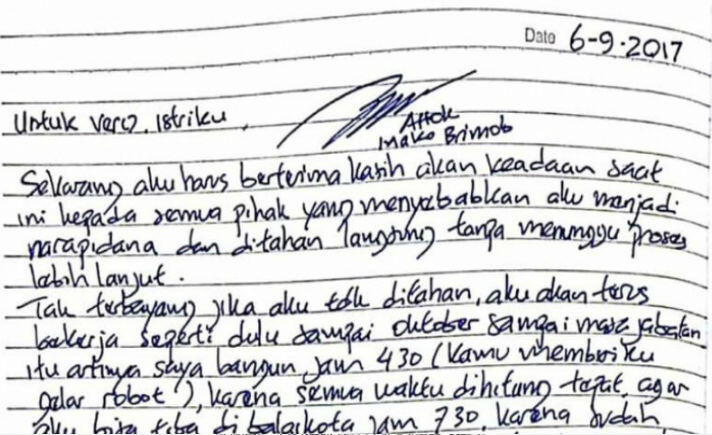 Date 6-9-2017
Untuk Vero, Istriku,
Ahok
Mako Brimob
Sekarang aku harus berterima kasih akan keadaan saat
ini kepada semua pihak yang menyebabkan aku menjadi
narapidana dan ditahan langsung tanpa menunggu proses
lebih lanjut.
Tak terbayang jika aku tdk ditahan, aku akan terus
bekerja seperti dulu sampai oktober sampai masa jabatan
itu artinya saya bangun jam 430 (kamu memberiku
gelar robot), karena semua waktu dihitung tepat, agar
aku bisa tiba di balaikota jam 730, karena sudah